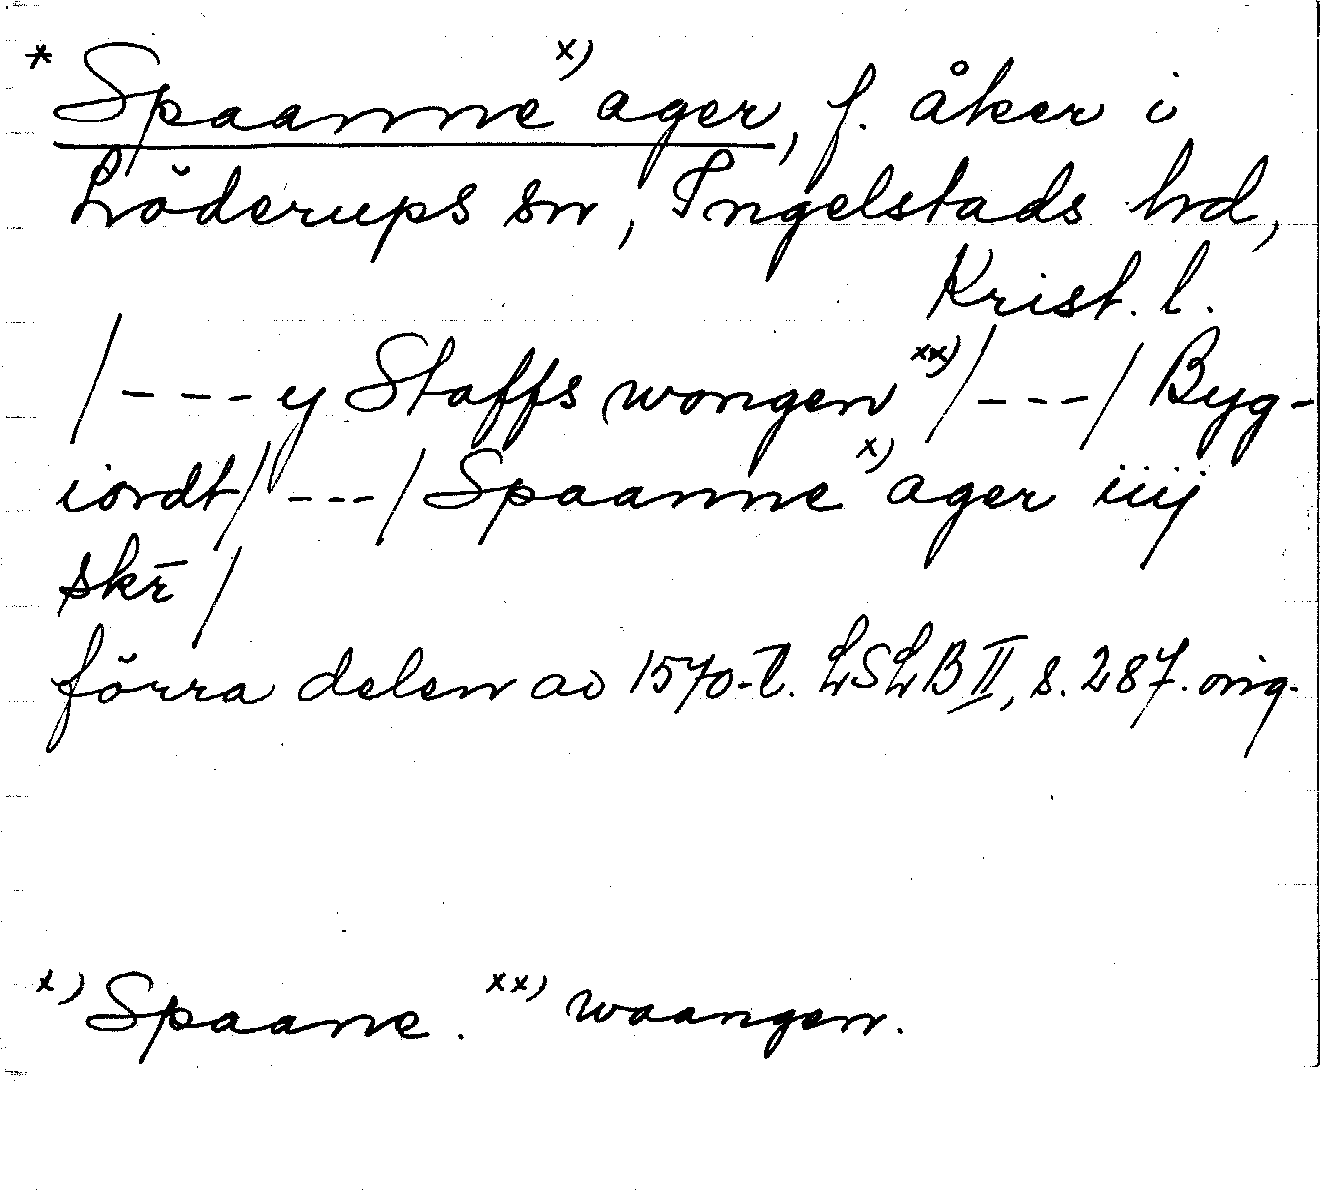 * Spaanne x) ager, f. åker i
Löderups sn, Ingelstads hd,
Krist. l.
/---y Staffs wongen xx) /---/ Byg-
iordt/---/ Spaanne x) ager iiij
skr̄ /
förra delen av 1570-t. LSLB II, s. 287. orig.
x) Spaane. xx) waangen.